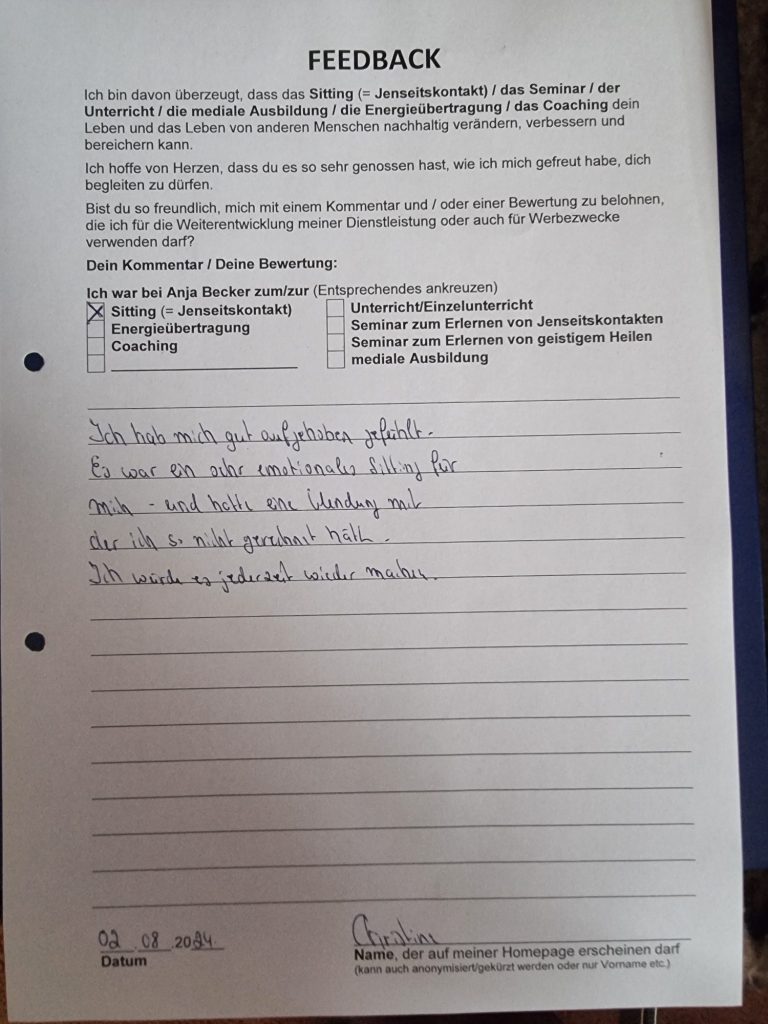 FEEDBACK
Ich bin davon überzeugt, dass das Sitting (= Jenseitskontakt) / das Seminar / der
Unterricht / die mediale Ausbildung / die Energieübertragung / das Coaching dein
Leben und das Leben von anderen Menschen nachhaltig verändern, verbessern und
bereichern kann.
Ich hoffe von Herzen, dass du es so sehr genossen hast, wie ich mich gefreut habe, dich
begleiten zu dürfen.
Bist du so freundlich, mich mit einem Kommentar und / oder einer Bewertung zu belohnen,
die ich für die Weiterentwicklung meiner Dienstleistung oder auch für Werbezwecke
verwenden darf?
Dein Kommentar / Deine Bewertung:
Ich war bei Anja Becker zum/zur (Entsprechendes ankreuzen)
Sitting (= Jenseitskontakt)
Energieübertragung
Coaching
Unterricht/Einzelunterricht
Seminar zum Erlernen von Jenseitskontakten
Seminar zum Erlernen von geistigem Heilen
mediale Ausbildung
Ich hab mich gut aufgehoben gefühlt.
Es war ein sehr emotionales Sitting für
mich - und hatte eine Wendung mit
der ich so nicht gerechnet hätte.
Ich würde es jederzeit wieder machen.
02 08 2024
Datum
Christine
Name, der auf meiner Homepage erscheinen darf
(kann auch anonymisiert/gekürzt werden oder nur Vorname etc.)